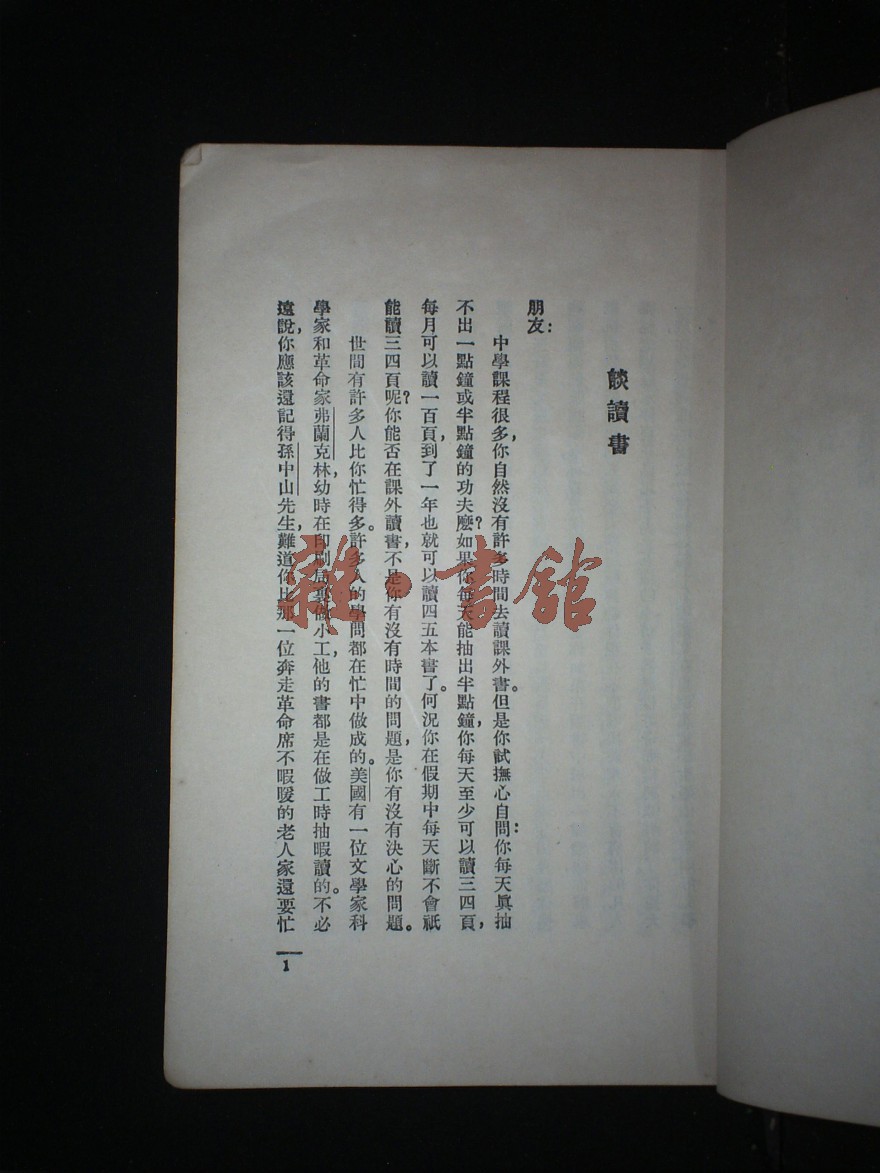 談讀書
朋友：
中學課程很多，你自然沒有許多時間去讀課外書。但是你試撫心自問：你每天眞抽
不出一點鐘或半點鐘的功夫麽？如果你每天能抽出半點鐘，你每天至少可以讀三四頁，
每月可以讀一百頁，到了一年也就可以讀四五本書了。何況你在假期中每天斷不會祇
能讀三四頁呢？你能否在課外讀書，不是你有沒有時間的問題，是你有沒有決心的問題。
世間有許多人比你忙得多。許多人的學問都在忙中做成的。美國有一位文學家科
學家和革命家弗蘭克林，幼時在印刷局裏做小工，他的書都是在做工時抽暇讀的。不必
遠說，你應該還記得孫中山先生，難道你比那一位奔走革命席不暇暖的老人家還要忙
1
雜·書館